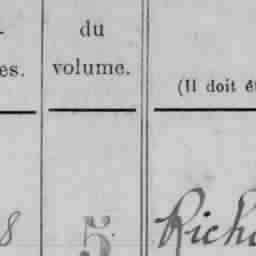 du
es. volume.
(Il doit ê
8 5 Rich